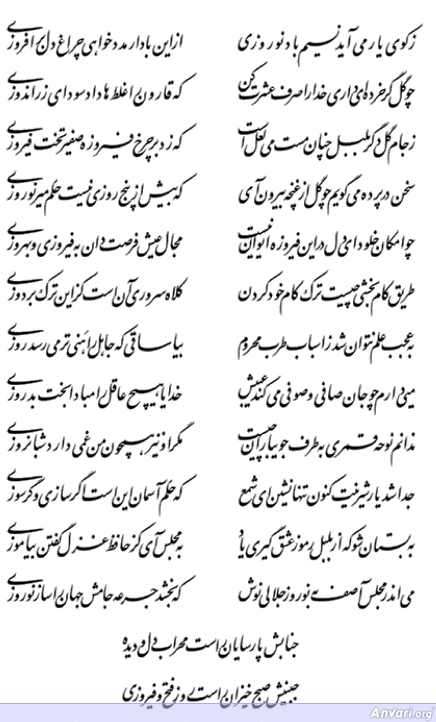 ز کوی یار می آید نسیم باد نوروزی از این باد ار مدد خواهی چراغ دل برافروزی
چو گل گر خرده ای داری خدا را صرف عشرت کن که قارون را غلط ها داد سودای زراندوزی
ز جام گل دگر بلبل چنان مست می لعل است که زد بر چرخ فیروزه صفیر تخت فیروزی
سخن در پرده می گویم چو گل از غنچه بیرون آی که بیش از پنج روزی نیست حکم میر نوروزی
چو امکان خلود ای دل در این فیروزه ایوان نیست مجال عیش فرصت دان به فیروزی و بهروزی
طریق کام بخشی چیست ترک کام خود کردن کلاه سروری آن است کز این ترک بردوزی
به عجب علم نتوان شد ز اسباب طرب محروم بیا ساقی که جاهل را هنی تر می رسد روزی
می ای دارم چو جان صافی و صوفی می کند عیبش خدایا هیچ عاقل را مبادا بخت بد روزی
ندانم نوحه قمری به طرف جویباران چیست مگر او نیز همچون من غمی دارد شبانروزی
جدا شد یار شیرینت کنون تنها نشین ای شمع که حکم آسمان این است اگر سازی و گر سوزی
به بستان شو که از بلبل رموز عشق گیری یاد به مجلس آی کز حافظ غزل گفتن بیاموزی
می اندر مجلس آصف به نوروز جلالی نوش که بخشد جرعه جامش جهان را ساز نوروزی
جنابش پارسایان راست محراب دل و دیده
جبینش صبح خیزان راست روز فتح و فیروزی
Anvari.org